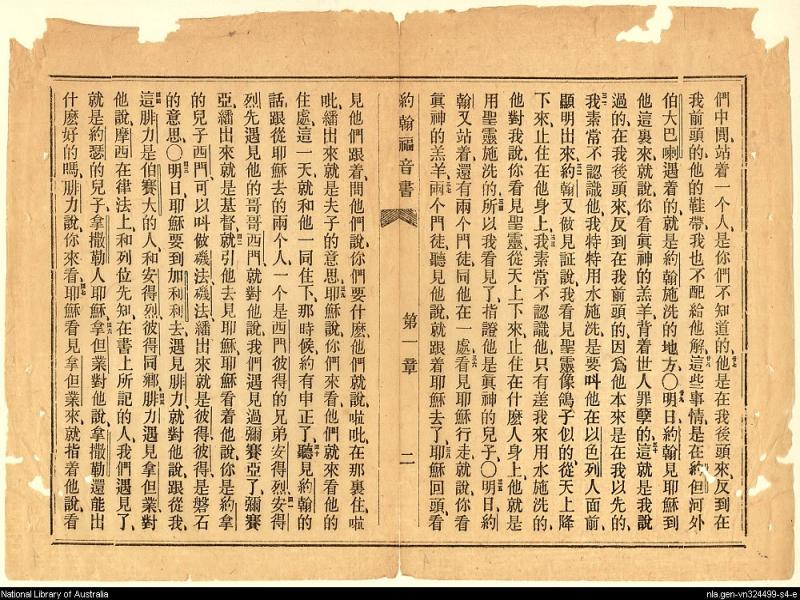 們中間、站着一個人、是你們不知道的、他是在我後頭來、反到在
我前頭的、他的鞋帶、我也不配給他解、這些事情、是在約但河外
伯大巴喇、遇着的、就是約翰施洗的地方、〇明日、約翰見耶穌到
他這裏來、就說、你看眞神的羔羊、背着世人罪孽的、這就是我說
過的、在我後頭來、反到在我前頭的、因爲他本來是在我以先的、
我素常不認識他、我特特用水施洗、是要叫他在以色列人面前、
顯明出來、約翰又做見証說、我看見聖靈、像鴿子似的、從天上降
下來、止住在他身上、我素常不認識他、只有差我來用水施洗的、
他對我說、你看見聖靈從天上下來、止住在什麽人身上、他就是
用聖靈施洗的、所以我看見了、指證他是眞神的兒子、〇明日、約
翰又站着、還有兩個門徒、同他在一處、看見耶穌行走、就說、你看
眞神的羔羊、兩個門徒聽見他說、就跟着耶穌去了、耶穌回頭看
約翰福音書 第一章 二
見他們跟着、問他們說、你們要什麽、他們就說、啦吡、在那裏住、啦
吡繙出來、就是夫子的意思、耶穌說、你們來看、他們就來看他的
住處、這一天、就和他一同住下、那時候、約有申正了、聽見約翰的
話、跟從耶穌去的兩個人、一個是西門彼得的兄弟安得烈、安得
烈先遇見他的哥哥西門、就對他說、我們遇見過彌賽亞了、彌賽
亞、繙出來就是基督、就引他去見耶穌、耶穌看着他說、你是約拿
的兒子西門、可以叫做磯法、磯法繙出來就是彼得、彼得是磐石
的意思、〇明日、耶穌要到加利利去、遇見腓力、就對他說、跟從我、
這腓力是伯賽大的人、和安得烈彼得同鄉、腓力遇見拿但業、對
他說、摩西在律法上、和列位先知在書上所記的人、我們遇見了、
就是約瑟的兒子、拿撒勒人耶穌、拿但業對他說、拿撒勒還能出
什麽好的嗎、腓力說、你來看、耶穌看見拿但業來、就指着他說、看
National Library of Australia
nla.gen-vn324499-s4-e